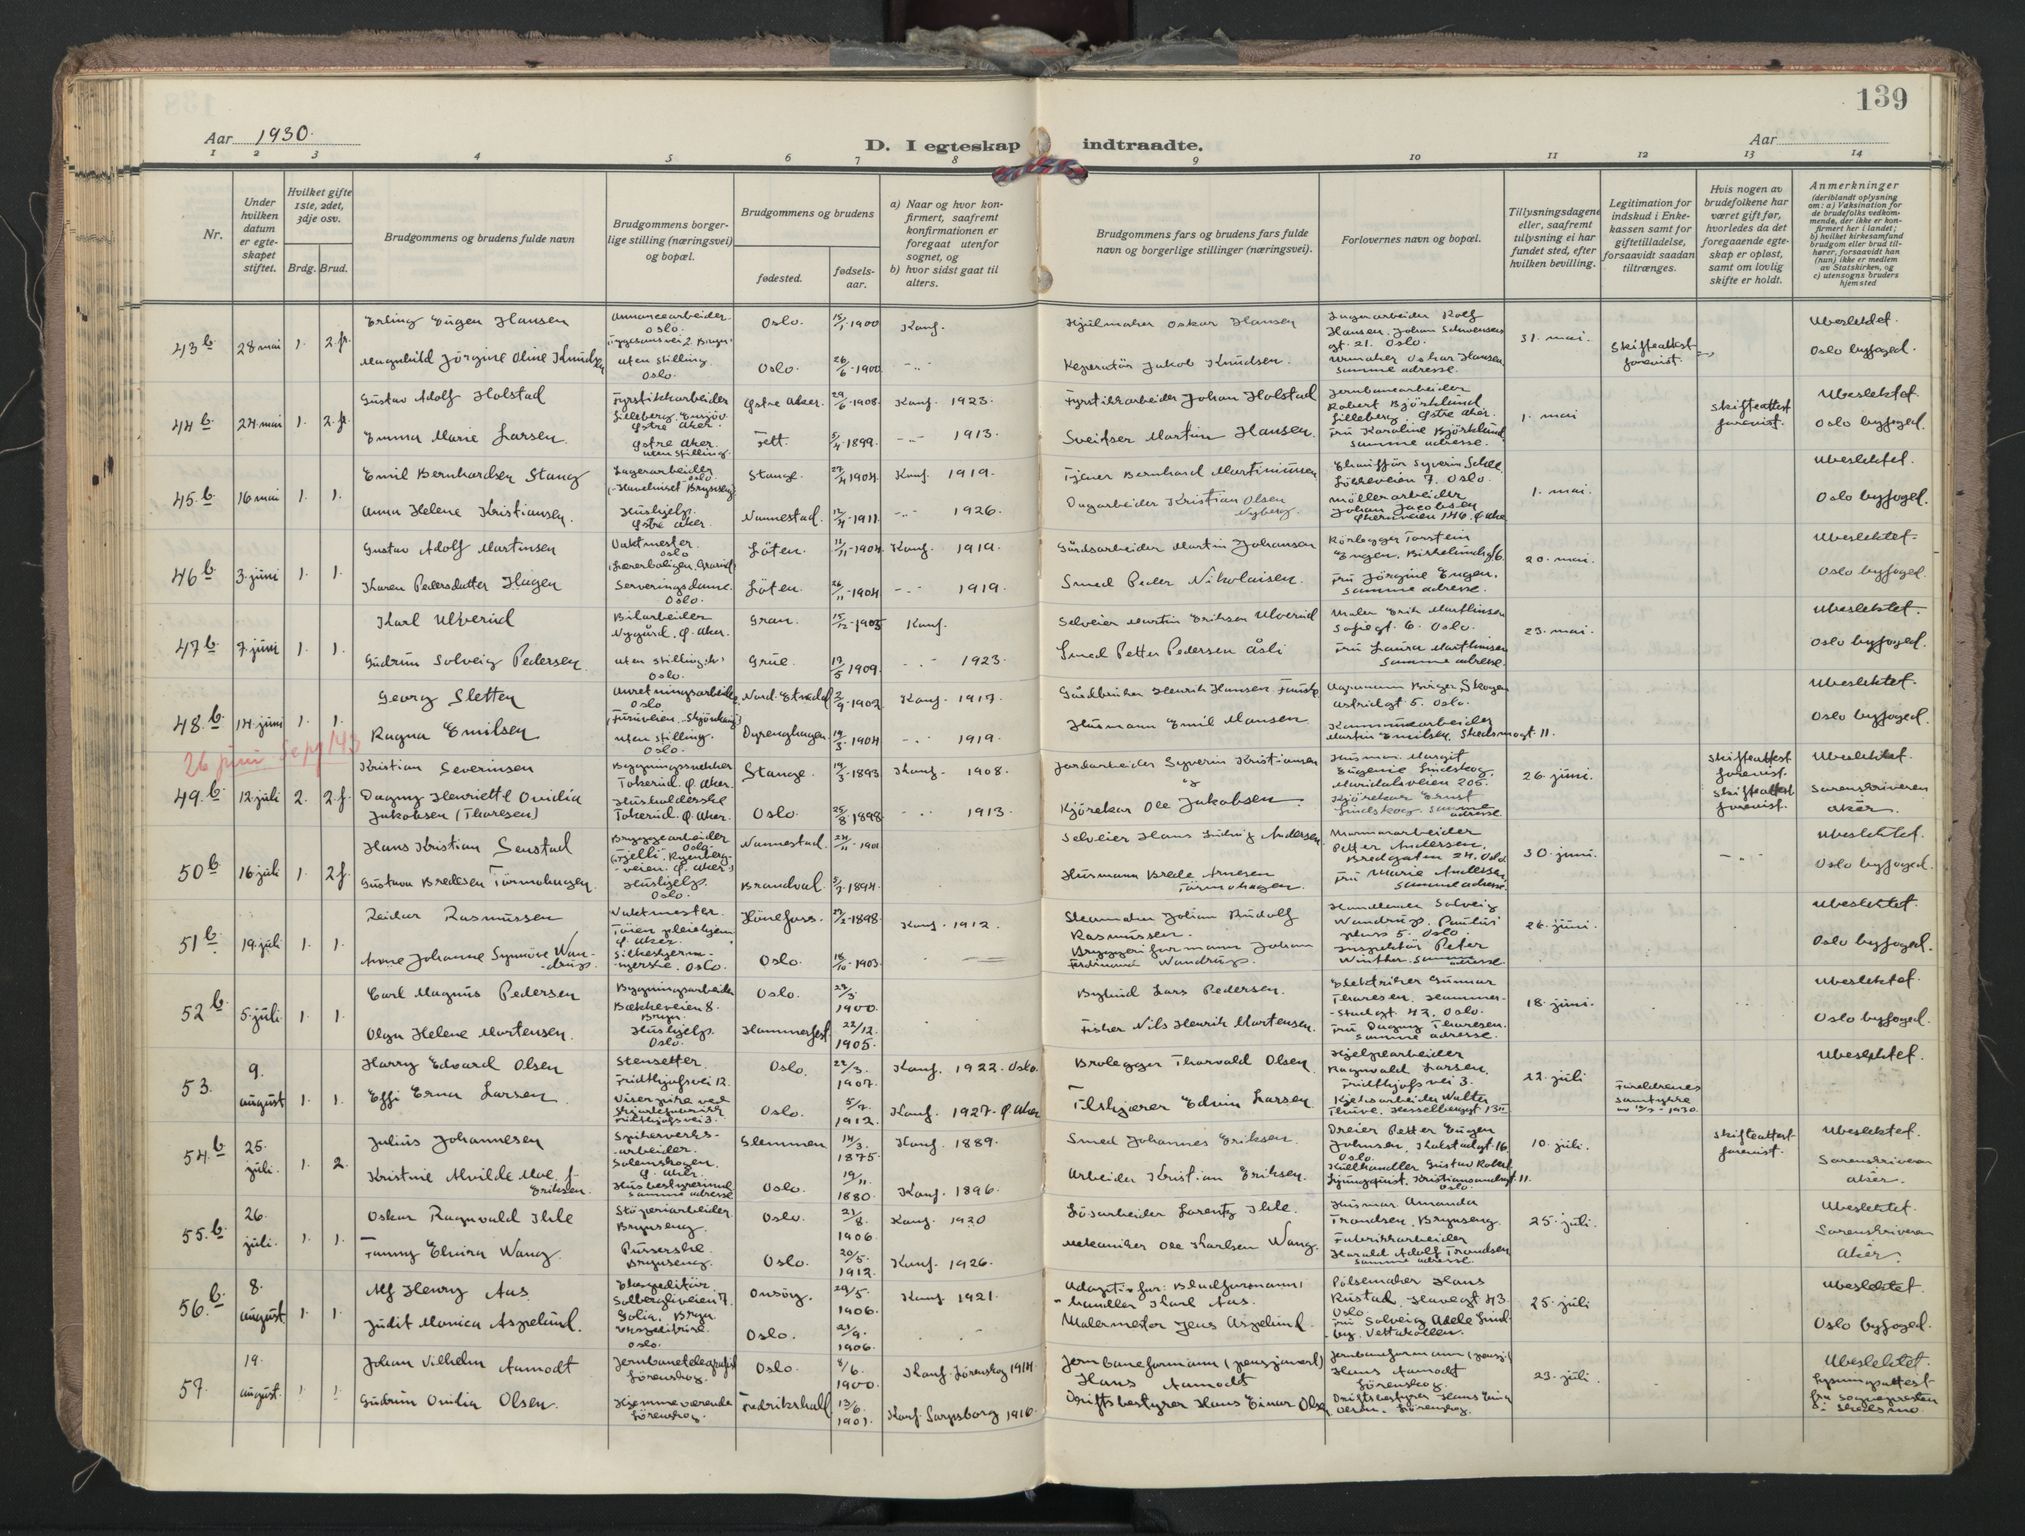 139
Aar 1930.
D. I egteskap indtraadte.
Aar
1 2 3 4 5 6 7 8 9 10 11 12 13 14
Nr.
Under hvilken datum er egteskapet stiftet.
Hvilket gifte 1ste, 2det, 3dje osv.
Brdg. Brud.
Brudgommens og brudens fulde navn
Brudgommens borgerlige stilling (næringsvei) og bopæl.
Brudgommens og brudens
fødested.
fødselsaar.
a) Naar og hvor konfirmert, saafremt konfirmationen er foregaat utenfor sognet, og
b) hvor sidst gaat til alters.
Brudgommens fars og brudens fars fulde navn og borgerlige stillinger (næringsvei).
Forlovernes navn og bopæl.
Tillysningsdagene eller, saafremt tillysning ei har fundet sted, efter hvilken bevilling.
Legitimation for indskud i Enkekassen samt for giftetilladelse, forsaavidt saadan tiltrænges.
Hvis nogen av brudefolkene har været gift før, hvorledes da det foregaaende egteskap er opløst, samt om lovlig skifte er holdt.
Anmerkninger (deriblandt oplysning om: a) Vaksination for de brudefolks vedkommende, der ikke er konfirmert her i landet; b) hvilket kirkesamfund brudgom eller brud tilhører, forsaavidt han (hun) ikke er medlem av Statskirken, og c) utensogns bruders hjemsted
43 b 28 mai 1. 2. fr.
Erling Eugen Hansen Oslo. 15/1-1900 Konf. Hjulmaker Oskar Hansen 31. mai. Ubeslektet.
Magnhild Jörgine Oline Knudsen uten stilling Oslo. Oslo. 26/6-1900 Reparatör Jakob Knudsen Urmaker Oskar Hansen samme adresse. Skifteattest forevist. Oslo byfoged.
44 b 24 mai 1. 2. fr.
Gustav Adolf Holstad Fyrstikkarbeider Östre Aker 29/6-1908 Konf. 1923. Fyrstikkarbeider Johan Holstad Jernbanearbeider Robert Björklund Lilleberg Östre Aker. 1. mai Skifteattest forevist. Ubeslektet.
Emma Marie Larsen. Östre Aker. uten stilling. Fett. 5/4-1899 1913. Sveitser Martin Hansen. Fru Karoline Björklund samme adresse. Oslo byfoged.
45. b 16 mai 1. 1.
Emil Bernhardsen Stang Lagerarbeider Oslo Stange. 27/4-1904 Konf. 1919. Tjener Bernhard Martiniussen Lökkeveien 7. Oslo. 1. mai. Ubeslektet.
Anna Helene Kristiansen. Hushjelp. Östre Aker. Nannestad. 12/4-1911. 1926. Dagarbeider Kristian Olsen Nyberg. Möllerarbeider Johan Jacobsen Oslo byfoged.
46 b 3. juni 1. 1.
Gustav Adolf Martinsen Vaktmester. Oslo Löten. 11/11-1904 Konf. 1919. Gårdsarbeider Martin Johansen Rörlegger Torstein Engen. 20 mai. Ubeslektet.
Karen Pedersdatter Hagen Serveringsdame. Oslo. Löten. 26/11-1904 1919. Smed Peder Nikolaisen. Fru Jörgine Engen. samme adresse. Oslo byfoged.
47 b 7. juni 1. 1.
Karl Ulverud Bilarbeider Nygård. Ö. Aker. Gran. 15/12-1905 Konf. Selveier Martin Eriksen Ulverud Maler Erik Marthinsen Sofiegt. 6. Oslo. 23. mai. Ubeslektet.
Gudrun Solveig Pedersen. uten stilling. Oslo. Grue. 13/5-1909. 1923. Smed Petter Pedersen Åsli Fru Laura Marthinsen samme adresse. Oslo byfoged.
48. b 14. juni 1. 1.
Georg Sletten Anretningsarbeider Oslo. Nord-Etnedal 2/9-1902 Konf. 1917. Birger Skogen Astridgt. 5. Oslo. Ubeslektet.
Ragna Emilsen uten stilling. Oslo. 19/5-1904 1919. Husmann Emil Hansen. Kommunearbeider Martin Emilsen. Skedsmogt. 11. Oslo byfoged.
26 juni Se pg 143
49. b 12. juli 2. 2. f.
Kristian Severinsen Bygningssnekker Tokerud. Ö. Aker. Stange. 19/3-1893 Konf. 1908. Jordarbeider Syverin Kristiansen Husmor Margit Eugenie Lindskog. Maridalsveien 205. 26. juni. Skifteattest forevist. Ubeslektet.
Dagny Henriette Ovidia Jakobsen (Thoresen) Husholderske Tokerud. Ö. Aker. Oslo. 25/8-1898 1913. Kjörekar Ole Jakobsen. Kjörekar Ernst Lindskog samme adresse. Skifteattest forevist. Sorenskriveren Aker.
50 b 16 juli 1. 2 f.
Hans Kristian Senstad Bryggearbeider Oslo Nannestad. 24/11-1901 Selveier Hans Ludvig Andersen. Marmorarbeider Petter Andersen. Bredgaten 24. Oslo 30. juni. Ubeslektet.
Gustava Bredesen Tormohagen. Hushjelp. Oslo. Brandval. 5/7-1894. Husmann Brede Arnesen Tormohagen. Fru Marie Andersen samme adresse. Oslo byfoged.
51 b 19. juli 1. 1.
Reidar Rasmussen Vaktmester. Töien pleiehjem Ö. Aker. Hönefoss. 27/2-1898 Konf. 1912. Johan Rudolf Rasmussen. Solveig Wandrup. Paulus plass 5. Oslo. 26. juni Ubeslektet.
Anne Johanne Synnöve Wandrup. Oslo. Oslo. 18/10-1903. Bryggeriformann Johan Ferdinand Wandrup. Inspektör Peter Winther. samme adresse. Oslo byfoged.
52 b. 5. juli. 1. 1.
Carl Magnus Pedersen Bygningsarbeider Bækkeveien 8. Bryn. Oslo. 27/3. 1900. Bybud Lars Pedersen. Elektriker Gunnar Thoresen. Hammerstadgt. 42. Oslo. 18. juni. Ubeslektet.
Olga Helene Mortensen. Hushjelp. Oslo. Hammerfest 22/12. 1905. Fisker Nils Henrik Mortensen. Fru Dagny Thoresen. samme adresse. Oslo byfoged.
53. 9. august 1. 1.
Harry Edvard Olsen Stensetter. Fridthjofsvei 12. Oslo. 22/3. 1907. Konf. 1922. Oslo. Brolegger Thorvald Olsen. Hjelpearbeider Ragnvald Larsen. Fridthjofsvei 3. 22. juli Ubeslektet.
Effi Erna Larsen. Oslo. 5/7. 1912. Konf. 1927. Ö. Aker Tilskjærer Edvin Larsen. Foreldrenes samtykke
54. b 25. juli. 1. 2.
Julius Johannesen Spikerverksarbeider. Glemmen 14/3. 1875. Konf. 1889. Smed Johannes Eriksen. Dreier Petter Eugen Johnsen. Oslo. 10. juli. Skifteattest forevist. Ubeslektet.
Kristine Alvilde Moe f. Eriksen. samme adresse Oslo. 19/11. 1880 Konf. 1896. Arbeider Kristian Eriksen. Oslo. Sorenskriveren Aker.
55. b 26. juli. 1. 1.
Oskar Ragnvald Ihle Stöperiarbeider Brynseng. Oslo 21/8. 1906. Konf. 1920 Lösarbeider Lorentz Ihle. Husmor Amanda Trondsen. Brynseng. 25. juli. Ubeslektet.
Fanny Elvira Wang. Pusserske. Brynseng. Oslo. 20/5. 1912. Konf. 1926. Mekaniker Ole Karlsen Wang. Fabrikkarbeider Harald Adolf Trondsen samme adresse. Sorenskriveren Aker.
56. b 8. august 1. 1.
Alf Henry Aas Ekspeditör Solbergliveien 7. Bryn. Onsöy. 29/5. 1906. Konf. 1921. Karl Aas. Pölsemaker Hans Rustad. Oslo. 25. juli Ubeslektet.
Judit Monica Aspelund. Ekspeditrise. Oslo. Oslo. 21/9. 1906. Malermester Jens Aspelund. Fru Solveig Adele Lindby. Vettakollen. Oslo byfoged.
57. 19. august. 1. 1.
Johan Vilhelm Aamodt Jernbanetelegrafist Lörenskog. Oslo. 8/6. 1900. Konf. Lörenskog 1914. Jernbaneformann (pensjonert) Hans Aamodt Jernbaneformann (pensj.) Hans Aamodt Lörenskog. 23. juli. Ubeslektet. Lysningsattest fra sognepresten i Skedsmo
Gudrun Ovidia Olsen. Hjemmeværende Lörenskog. Fredrikshald 13/6. 1901. Konf. Sarpsborg 1916. Driftsbestyrer Hans Einar Olsen Driftsbestyrer Hans Einar Olsen. Lörenskog.